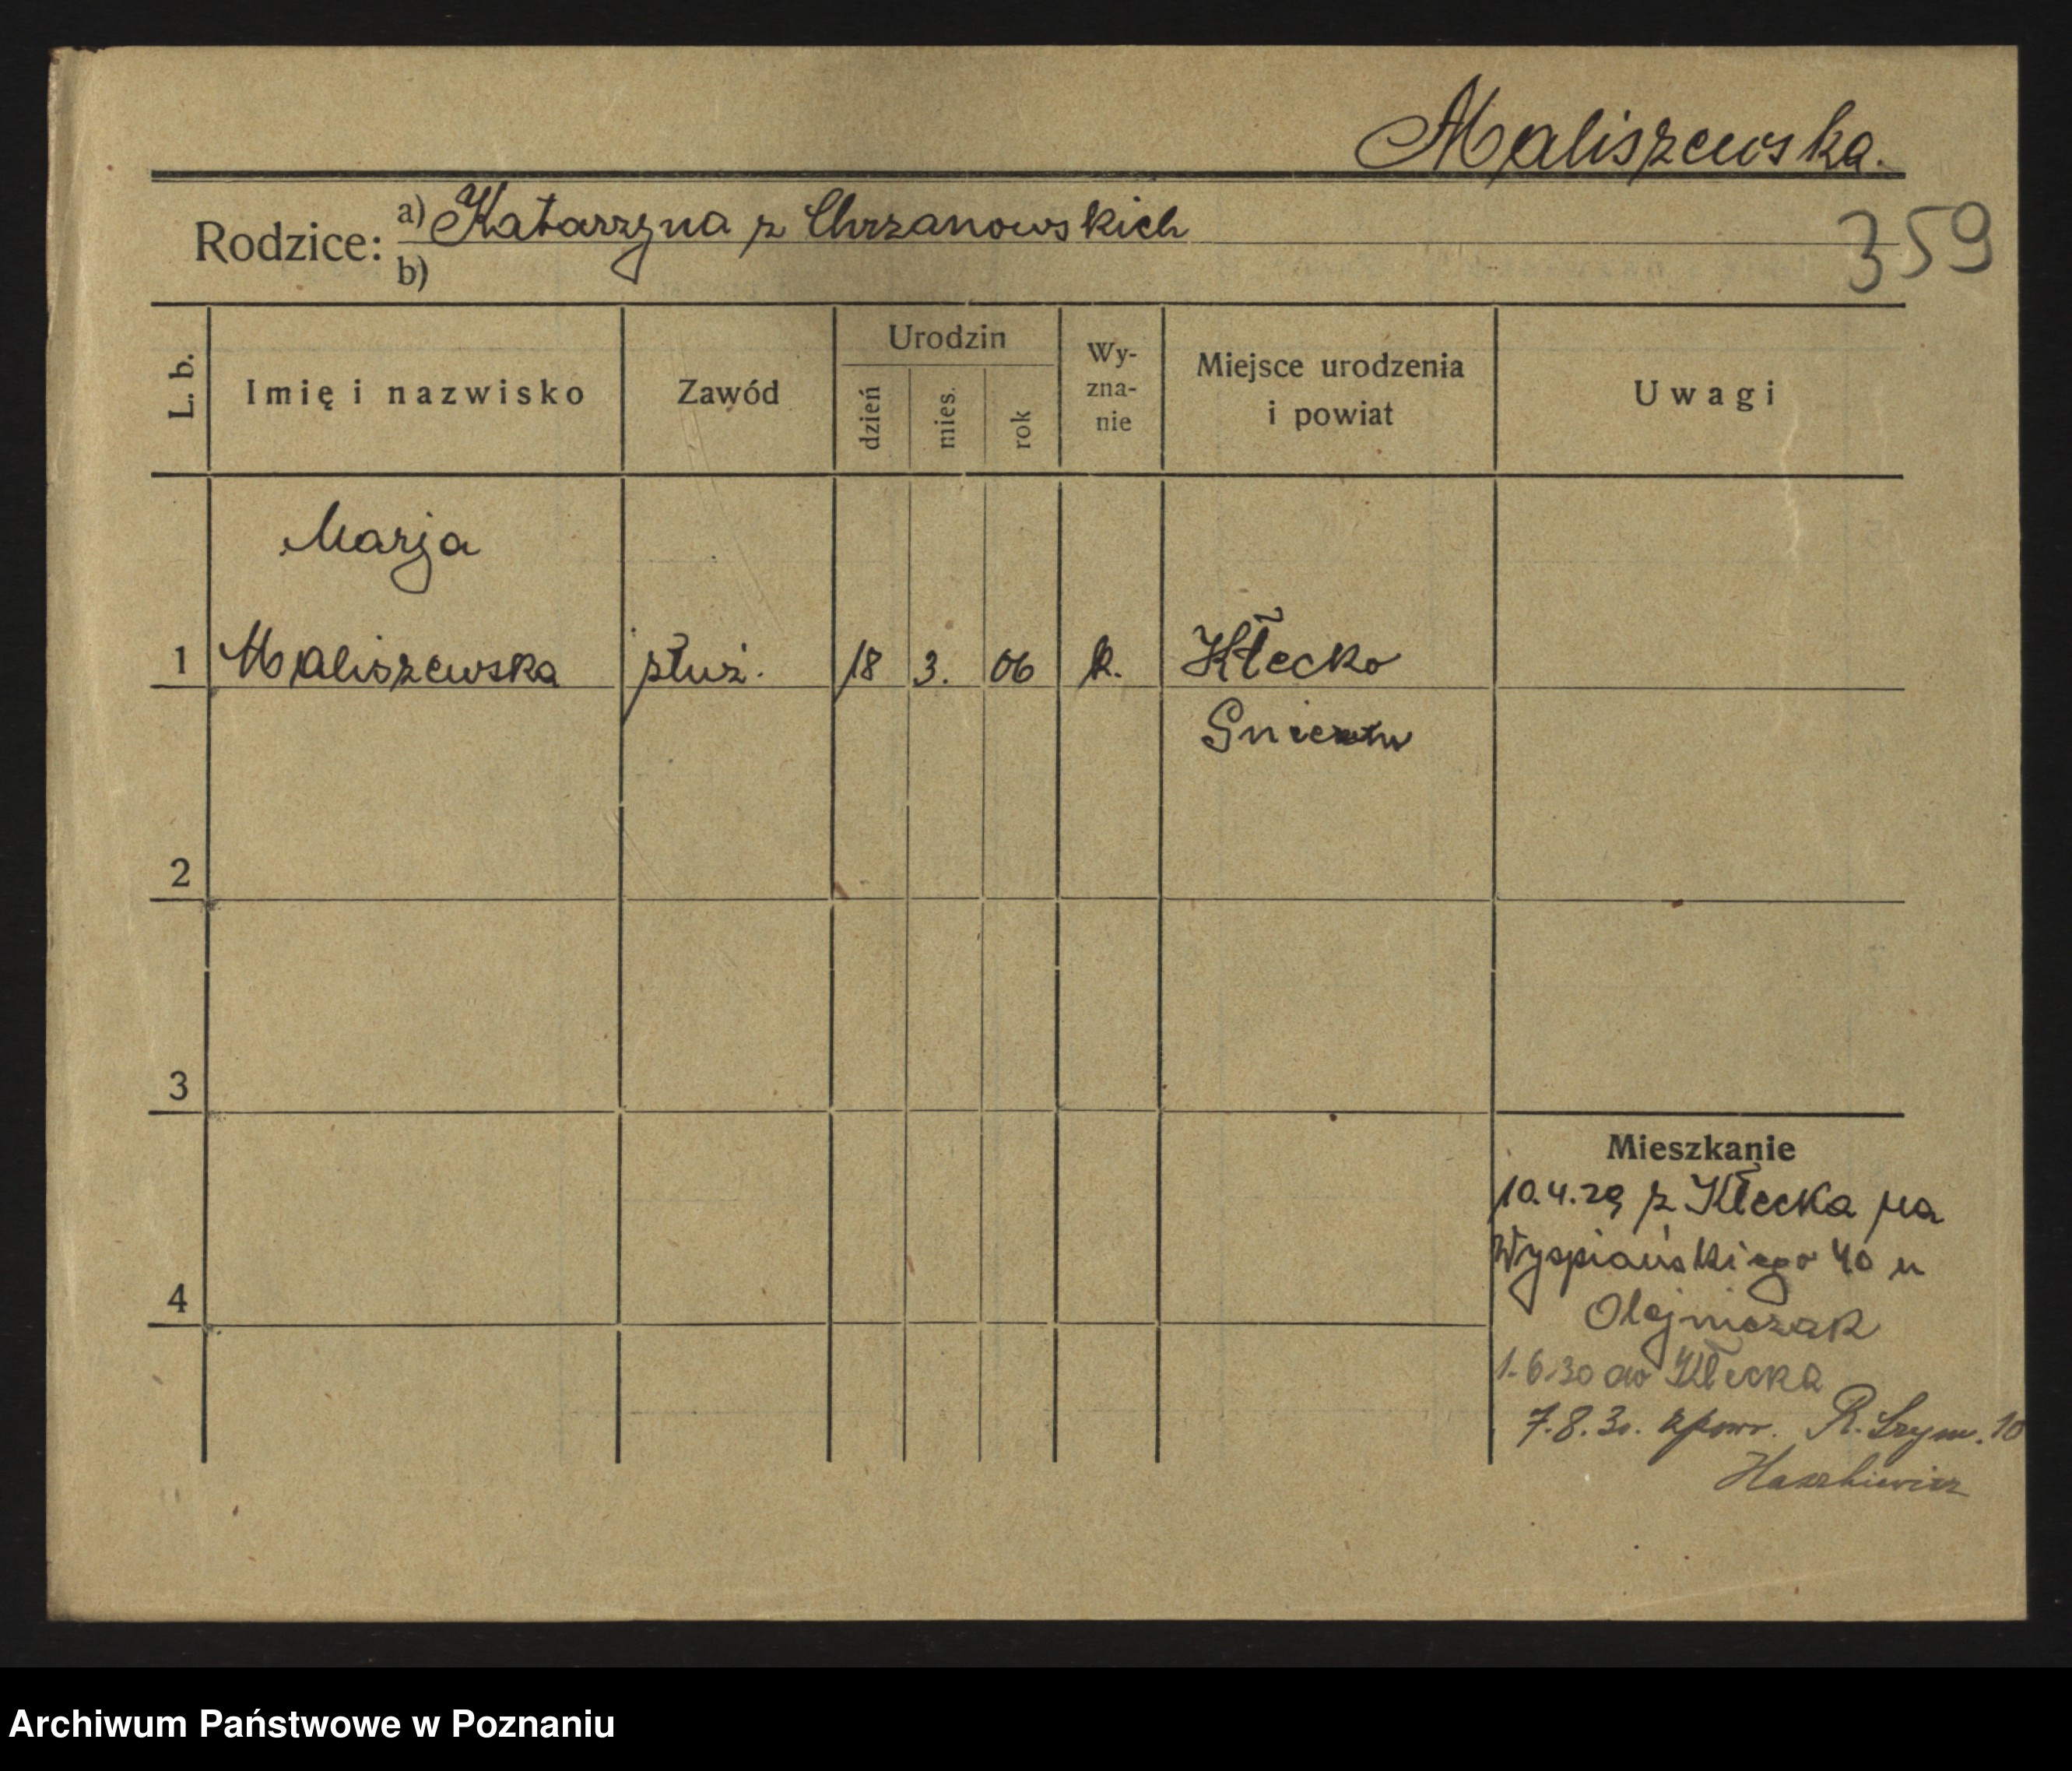 Maliszewska.
Rodzice: a) Katarzyna z Chrzanowskich
b)
359
L. b.
Imię i nazwisko
Zawód
Urodzin
dzień
mies.
rok
Wy-
zna-
nie
Miejsce urodzenia
i powiat
Uwagi
Marja
1 Maliszewska służ. 18 3. 06 k. Kłecko
Gniezno
2
3
4
Mieszkanie
10.4.29 z Kłecka na
Wyspiańskiego 40 u
Olejniczak
1.6.30 do Kłecka
7.8.30. zpowr. R. Szym. 10
Archiwum Państwowe w Poznaniu